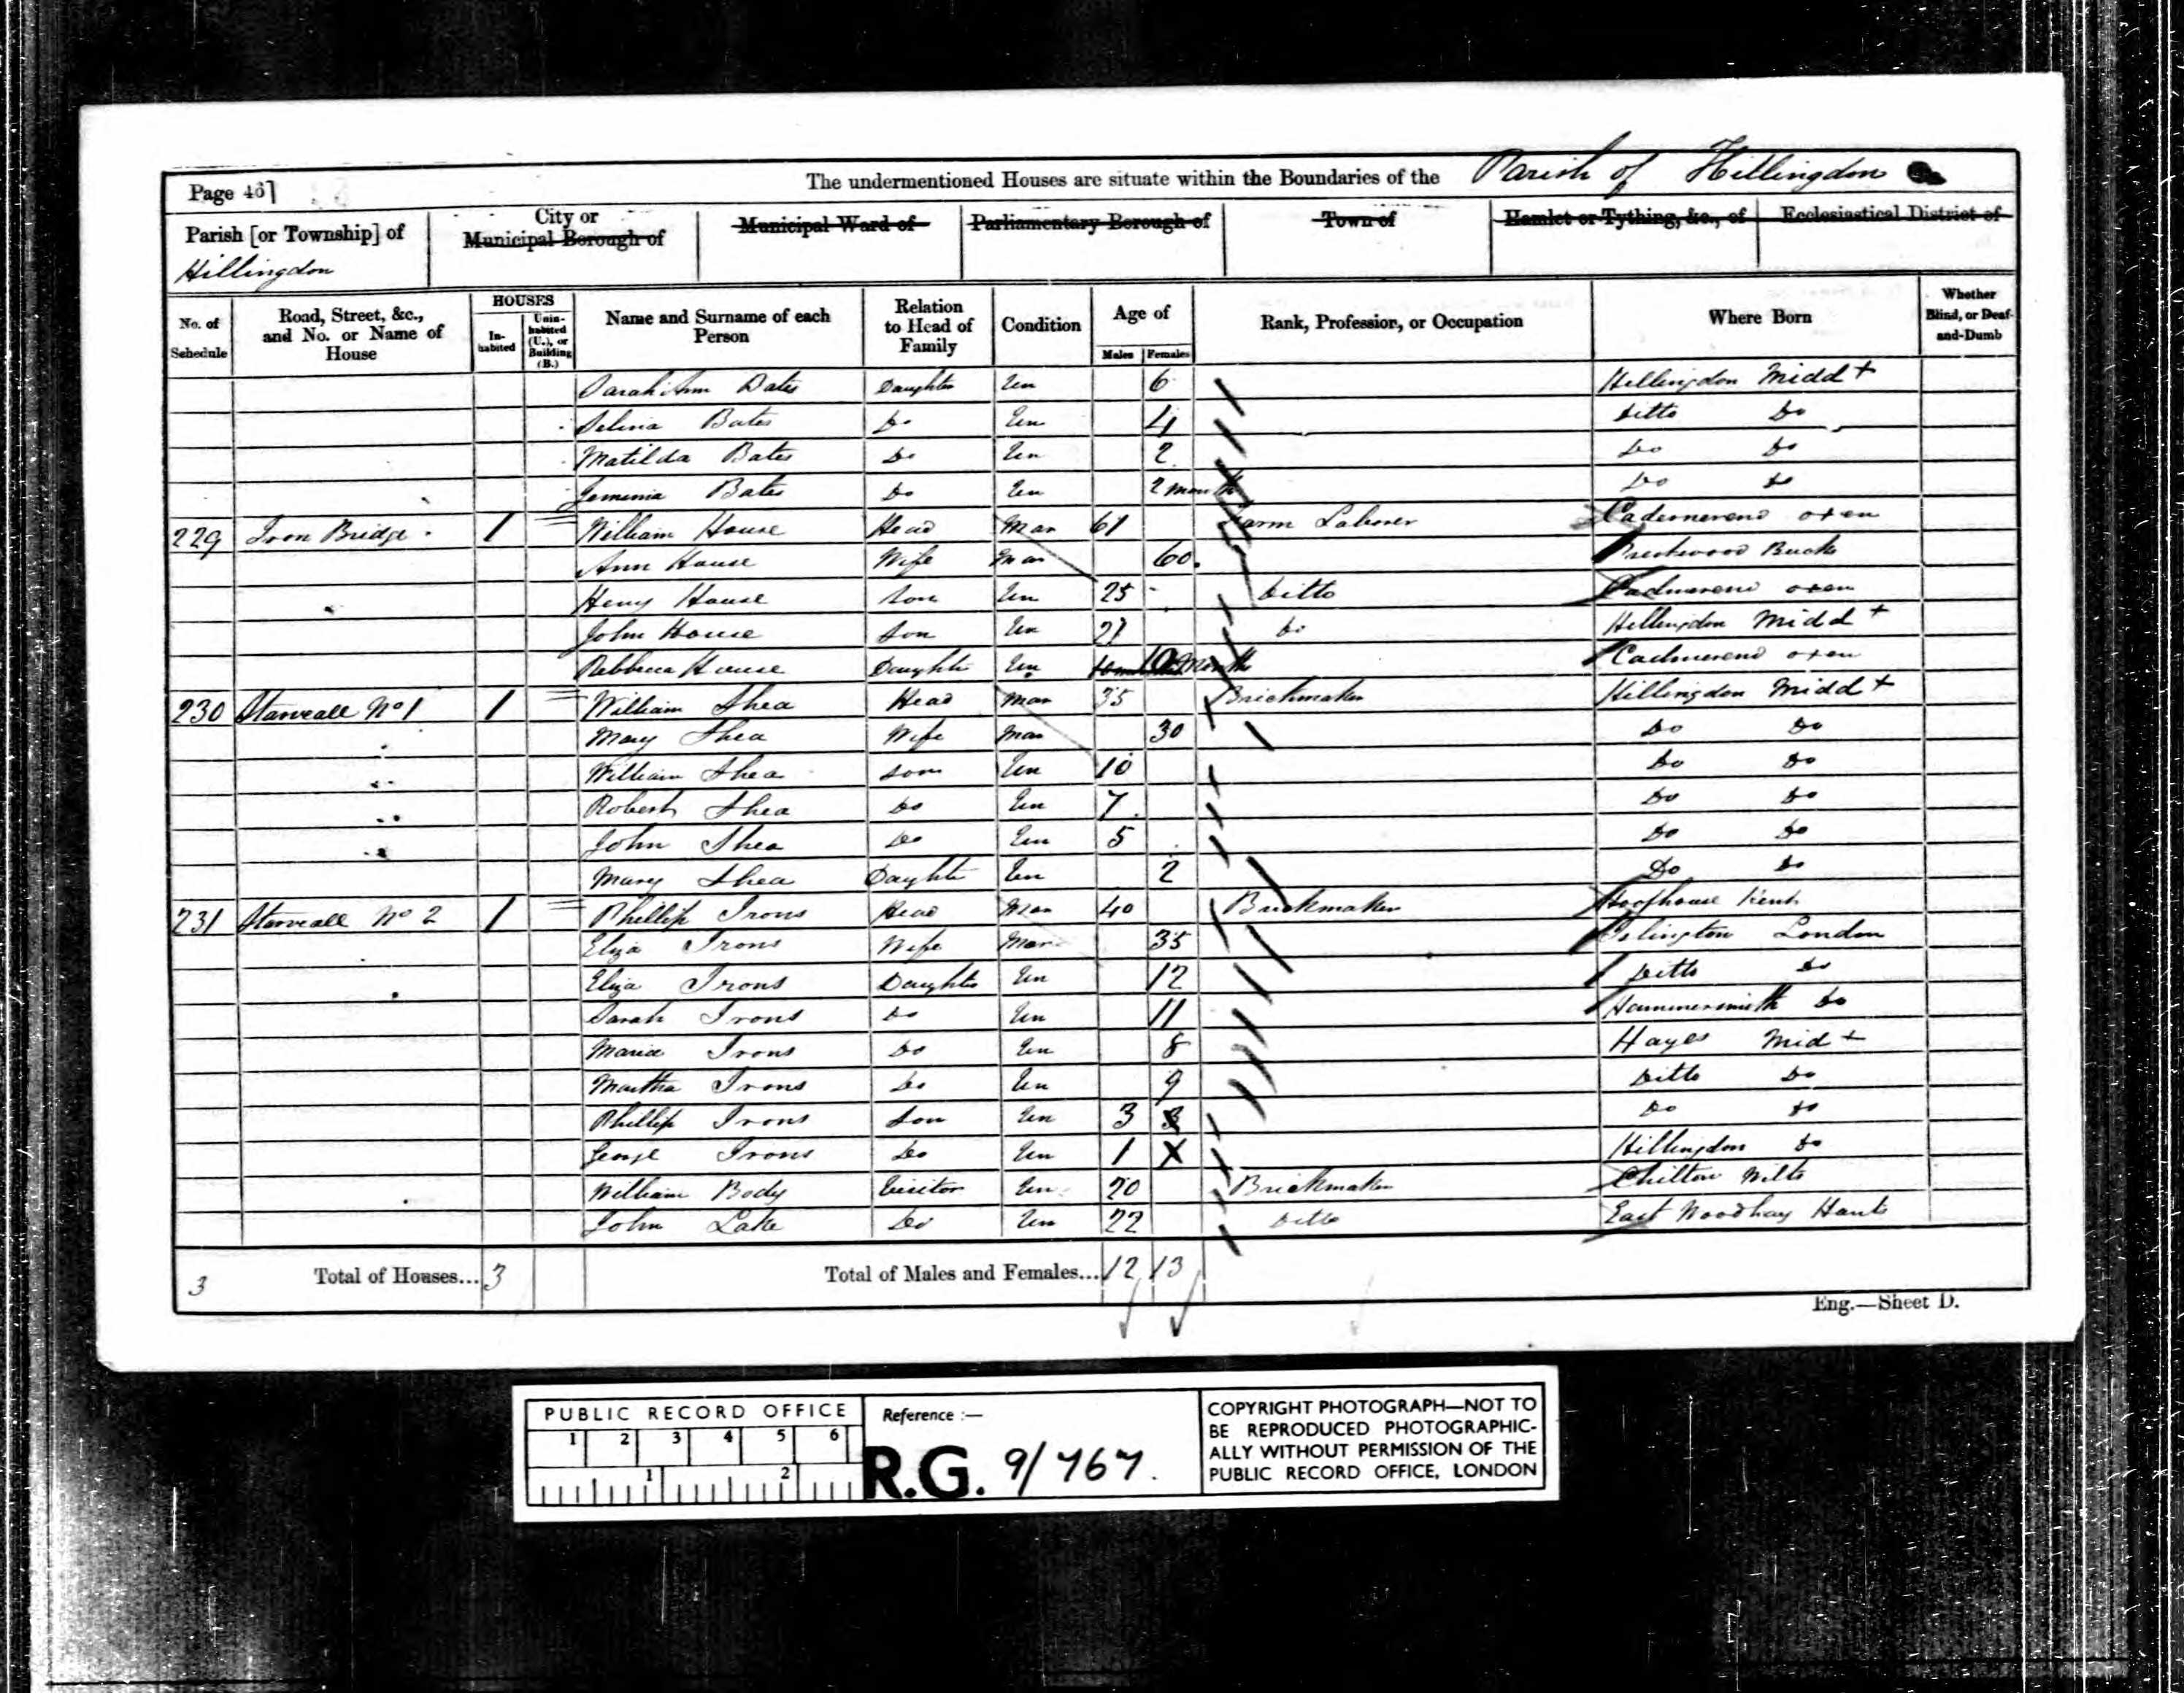 Page 46]
The undermentioned Houses are situate within the Boundaries of the Parish of Hillingdon
Parish [or Township] of Hillingdon
City or Municipal Borough of
Municipal Ward of
Parliamentary Borough of
Town of
Hamlet or Tything, &c., of
Ecclesiastical District of
No. of Schedule
Road, Street, &c., and No. or Name of House
HOUSES
Inhabited
Uninhabited (U.), or Building (B.)
Name and Surname of each Person
Relation to Head of Family
Condition
Age of
Males
Females
Rank, Profession, or Occupation
Where Born
Whether Blind, or Deaf-and-Dumb
Sarah Ann Bates Daughter Un 6 Hillingdon Midd +
Selina Bates Do Un 4 ditto Do
Matilda Bates Do Un 2 Do Do
Jemima Bates Do Un 2 month Do Do
229 Iron Bridge 1 William House Head Mar 61 Farm Laborer Cadmerend oxen
Ann House Wife Mar 60 Bucks
Henry House Son Un 25 ditto Cadmerend oxen
John House Son Un 21 Do Hillingdon Midd +
Rebbecca House Daughte Un 10 Month Cadmerend oxen
230 Starveall No 1 1 William Shea Head Mar 35 Brickmaker Hillingdon Midd +
Mary Shea Wife Mar 30 Do Do
William Shea Son Un 10 Do Do
Robert Shea Do Un 7 Do Do
John Shea Do Un 5 Do Do
Mary Shea Daughte Un 2 Do Do
231 Starveall No 2 1 Phillip Irons Head Mar 40 Brickmaker Kent
Eliza Irons Wife Mar 35 Islington London
Eliza Irons Daughter Un 12 Ditto Do
Sarah Irons Do Un 11 Hammersmith Do
Maria Irons Do Un 8 Hayes Mid +
Martha Irons Do Un 9 Ditto Do
Phillip Irons Son Un 3 Do Do
George Irons Do Un 1 Hillingdon Do
William Body Visitor Un 20 Brickmaker Chilton Wilts
John Lake Do Un 22 Ditto East Woodhay Hants
3 Total of Houses... 3 Total of Males and Females... 12 13
Eng.—Sheet D.
PUBLIC RECORD OFFICE
1 2 3 4 5 6
1 2
Reference :—
R.G. 9/767.
COPYRIGHT PHOTOGRAPH—NOT TO
BE REPRODUCED PHOTOGRAPHIC-
ALLY WITHOUT PERMISSION OF THE
PUBLIC RECORD OFFICE, LONDON